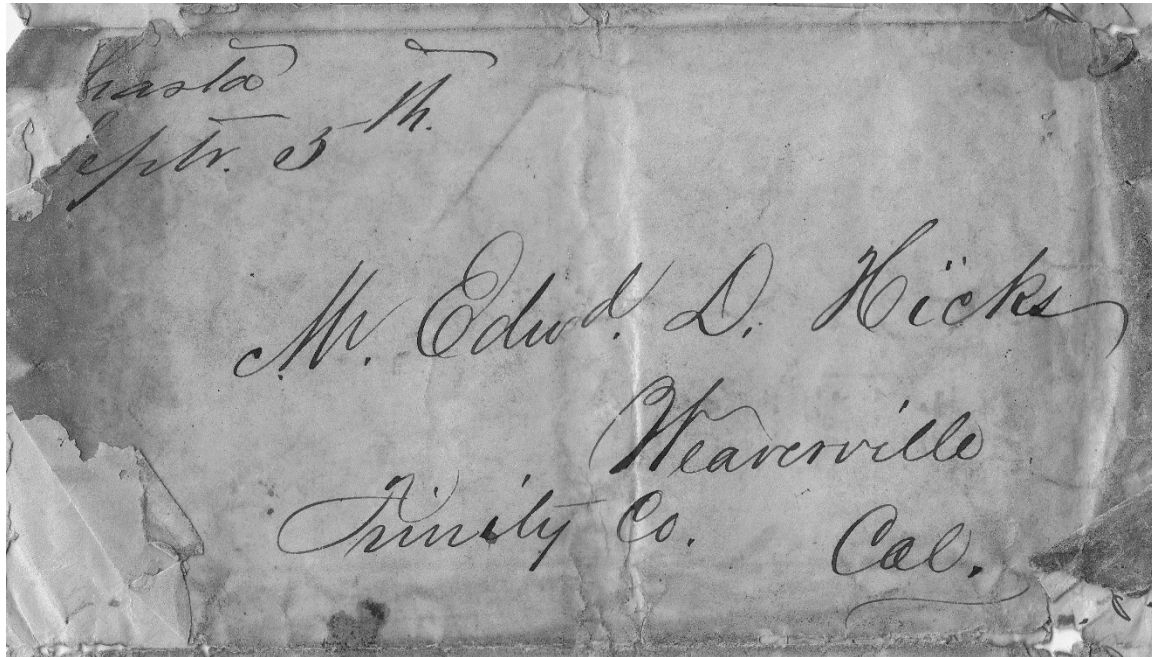 hasta
eptr. 5th.
Mr. Edwd. D. Hicks
Weaverville
Trinity Co.
Cal.